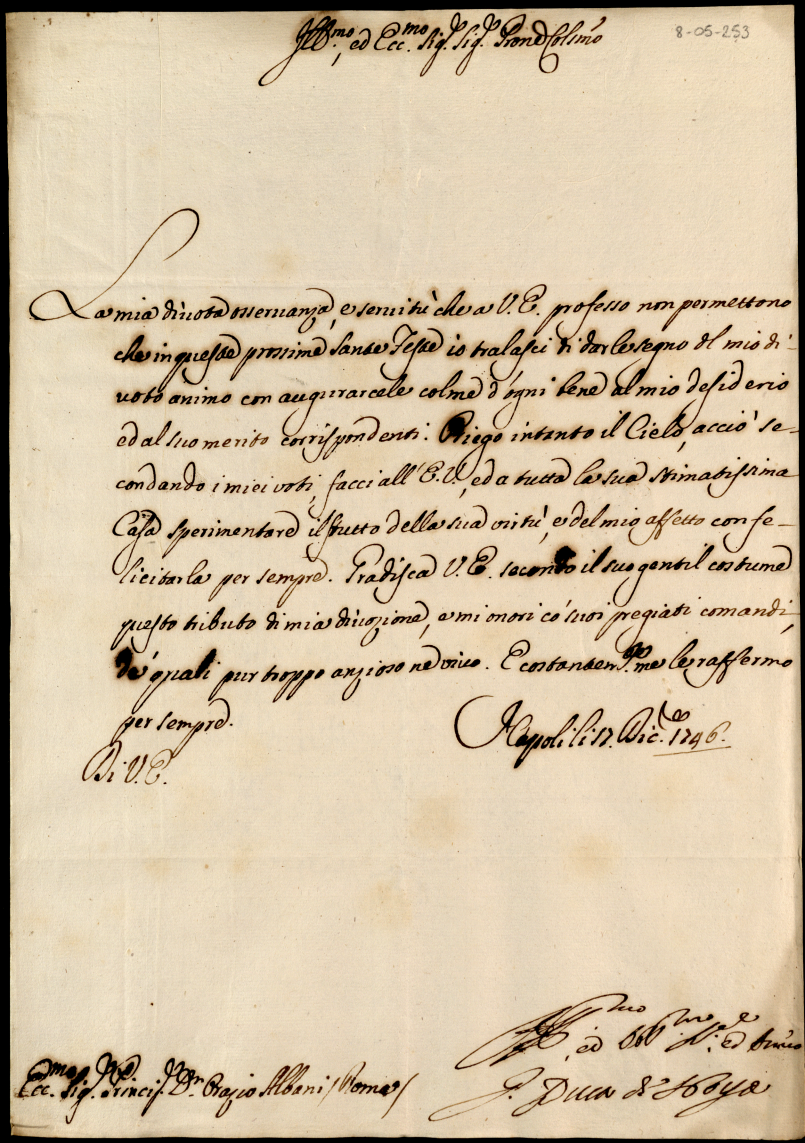 Ill.mo, ed Ecc.mo Sig.r Sig.r Prone Colmo
8-05-253
La mia divota osservanza, e servitù che a V.E. professo non permettono
che in queste prossime Sante Feste io tralasci di darle segno del mio di-
voto animo con augurarcele colme d'ogni bene al mio desiderio
ed al suo merito corrispondenti. Priego intanto il Cielo, acciò se-
condando i miei voti, facci all'E.V., ed a tutta la sua stimatissima
Casa sperimentare il frutto della sua virtù, e del mio affetto con fe-
licitarla per sempre. Gradisca V.E. secondo il suo gentil costume
questo tributo di mia divozione, e mi onori co' suoi pregiati comandi,
de' quali pur troppo anzioso ne vivo. E costantem.te me le raffermo
per sempre.
Napoli li 17. Dic.re 1746.
Di V.E.
ed
ed
Duca di Noya
Ecc.mo Sig.r Princip.e D.n Orazio Albani /Roma/